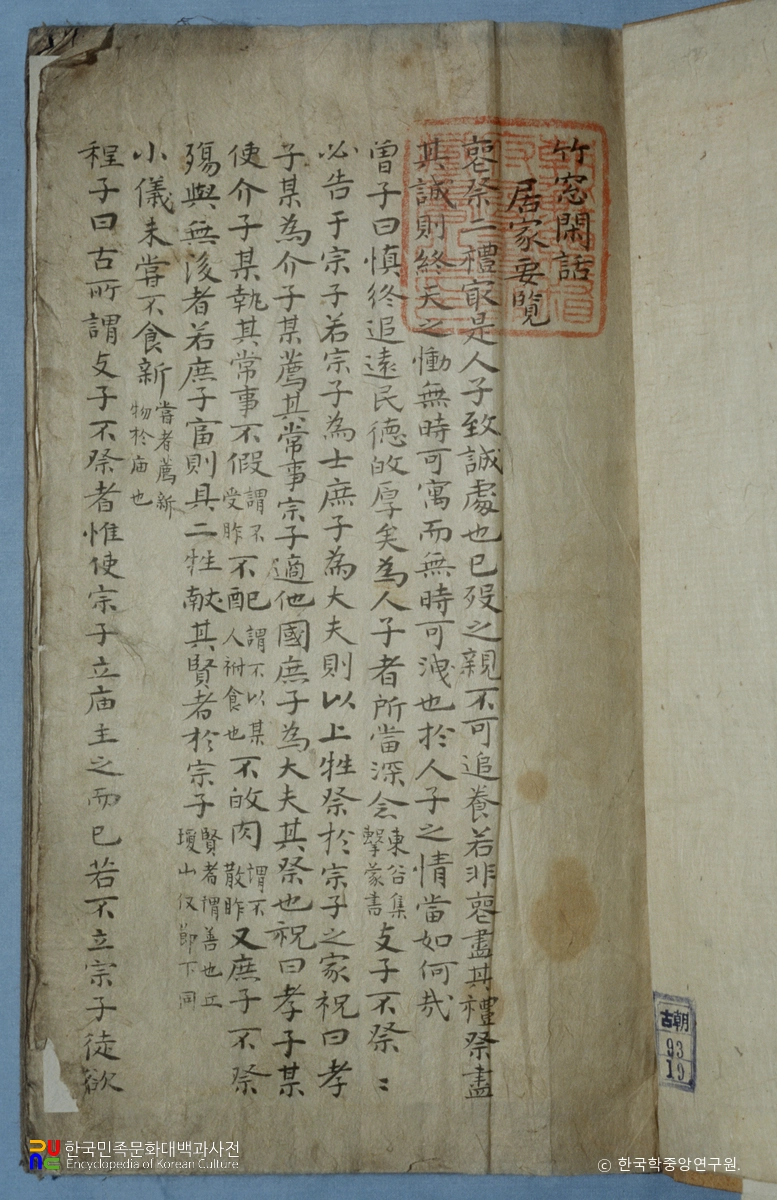 竹窓閑話
居家要覽
喪祭二禮㝡是人子致誠處也已歿之親不可追養若非喪盡其禮祭盡
其誠則終天之慟無時可寓而無時可洩也於人子之情當如何哉
曾子曰慎終追遠民德歸厚矣為人子者所當深念 東谷集 擊蒙書 支子不祭〻
必告于宗子若宗子為士庶子為大夫則以上牲祭於宗子之家祝曰孝
子某為介子某薦其常事宗子適他國庶子為大夫其祭也祝曰孝子某
使介子某執其常事不假 謂不 受胙 不配 謂不以某 人祔食也 不歸肉 謂不 散胙 又庶子不祭
殤與無後者若庶子富則具二牲献其賢者於宗子 賢者謂善也丘 瓊山仅節下同
小儀未嘗不食新 嘗者薦新 物於庙也
程子曰古所謂支子不祭者惟使宗子立庙主之而已若不立宗子徒欲
古朝
93
19
한국민족문화대백과사전
Encyclopedia of Korean Culture
© 한국학중앙연구원.